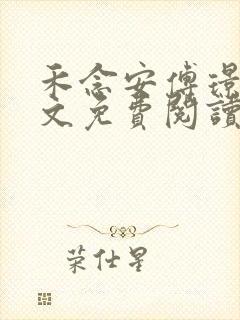 禾念安傅璟
文免費閱讀
荣仕星